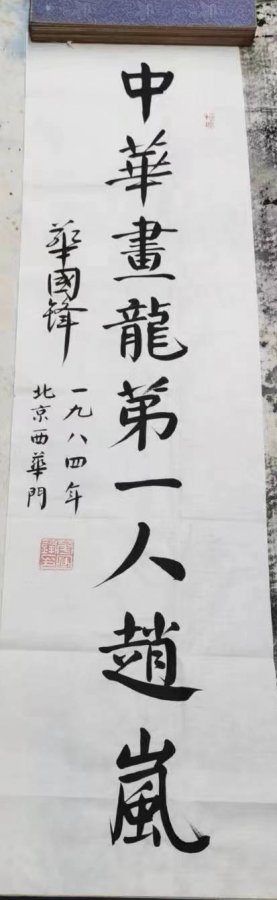 中華畫龍第一人趙嵐
華國鋒
一九八四年
北京西華門